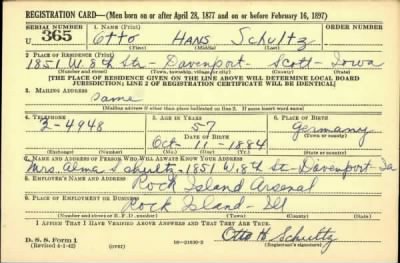 REGISTRATION CARD—(Men born on or after April 28, 1877 and on or before February 16, 1897)
SERIAL NUMBER 1. NAME (Print) ORDER NUMBER
U 365 Otto Hans Schultz
(First) (Middle) (Last)
2. PLACE OF RESIDENCE (Print)
1851 W. 8th St - Davenport - Scott - Iowa
(Number and street) (Town, township, village, or city) (County) (State)
[THE PLACE OF RESIDENCE GIVEN ON THE LINE ABOVE WILL DETERMINE LOCAL BOARD
JURISDICTION; LINE 2 OF REGISTRATION CERTIFICATE WILL BE IDENTICAL]
3. MAILING ADDRESS
Same
[Mailing address if other than place indicated on line 2. If same insert word same]
4. TELEPHONE 5. AGE IN YEARS 6. PLACE OF BIRTH
2-4948 57 Germany
DATE OF BIRTH
Oct - 11 - 1884
(Exchange) (Number) (Mo.) (Day) (Yr.) (State or country)
7. NAME AND ADDRESS OF PERSON WHO WILL ALWAYS KNOW YOUR ADDRESS
Mrs. Alma Schultz - 1851 W. 8th St - Davenport - Ia
8. EMPLOYER'S NAME AND ADDRESS
Rock Island Arsenal
9. PLACE OF EMPLOYMENT OR BUSINESS
Rock Island - Ill
(Number and street or R. F. D. number) (Town) (County) (State)
I AFFIRM THAT I HAVE VERIFIED ABOVE ANSWERS AND THAT THEY ARE TRUE.
Otto H Schultz
D. S. S. Form 1
(Revised 4-1-42) (over) 16—21630-2 (Registrant's signature)